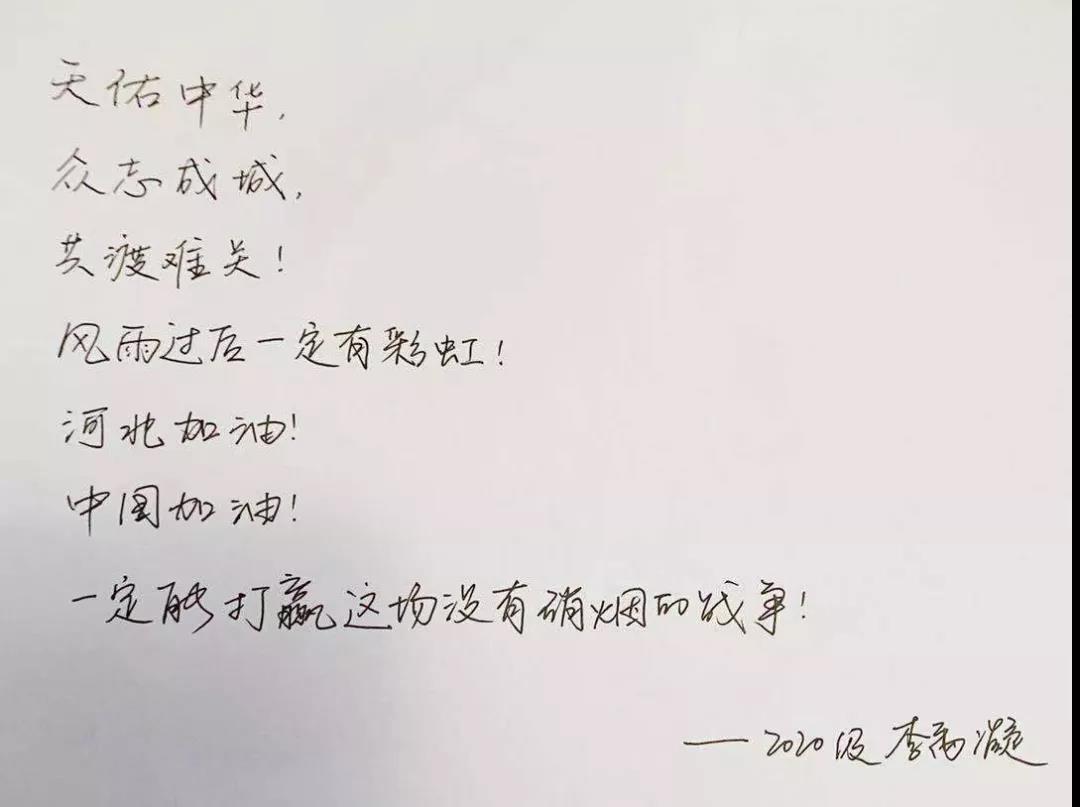 天佑中华,
众志成城,
共渡难关!
风雨过后一定有彩虹!
河北加油!
中国加油!
一定能打赢这场没有硝烟的战争!
——2020级 李雨凝